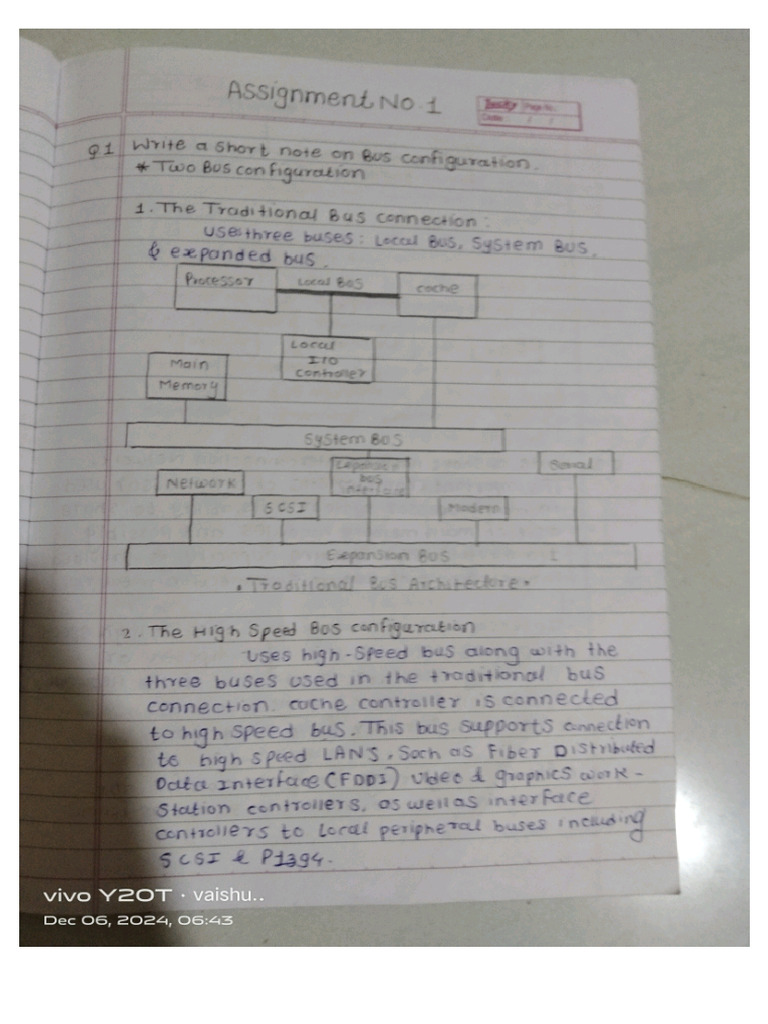 Assignment No. 1
Page No.
Date: / /
Q1 Write a short note on Bus configuration.
* Two Bus configuration
1. The Traditional Bus connection:
Uses three buses: Local Bus, System Bus,
& expanded bus.
Processor
Local Bus
cache
Local
I/O
controller
Main
Memory
System Bus
bus
interface
Serial
Network
SCSI
Modem
Expansion Bus
• Traditional Bus Architecture •
2. The High Speed Bus configuration
Uses high-speed bus along with the
three buses used in the traditional bus
connection. cache controller is connected
to high speed bus. This bus supports connection
to high speed LANs, Such as Fiber Distributed
Data Interface (FDDI) Video & graphics work-
station controllers, as well as interface
controllers to Local peripheral buses including
SCSI & P1394.
vivo Y20T · vaishu..
Dec 06, 2024, 06:43